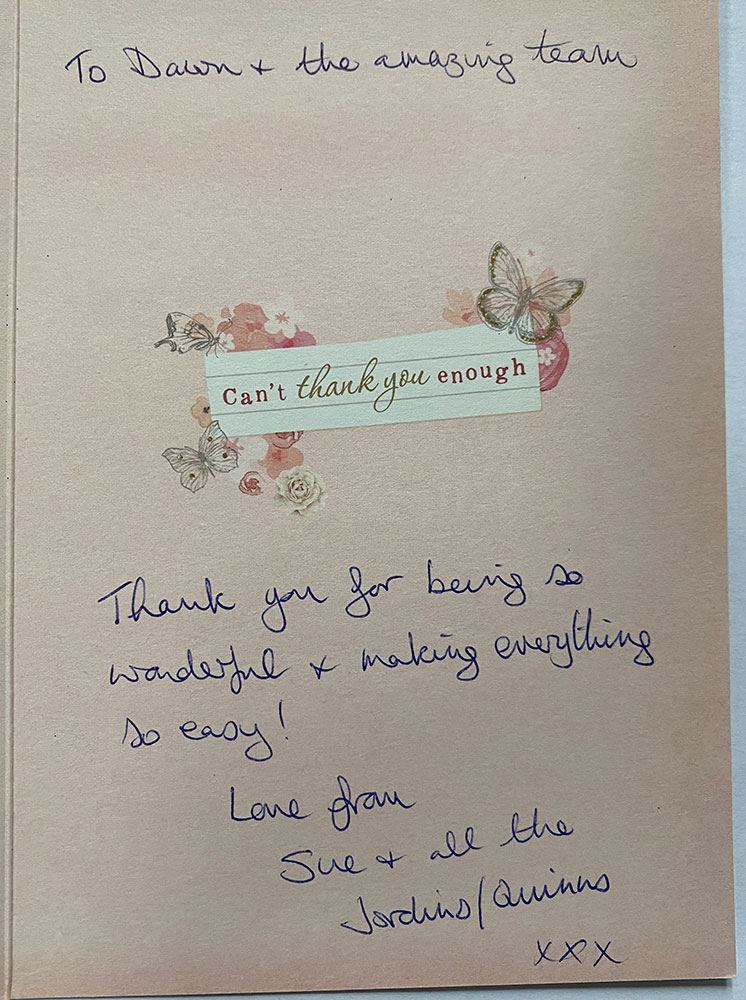 To Dawn + the amazing team
Can't thank you enough
Thank you for being so
wonderful + making everything
so easy!
Love from
Sue + all the
Jordins/Quinns
xxx